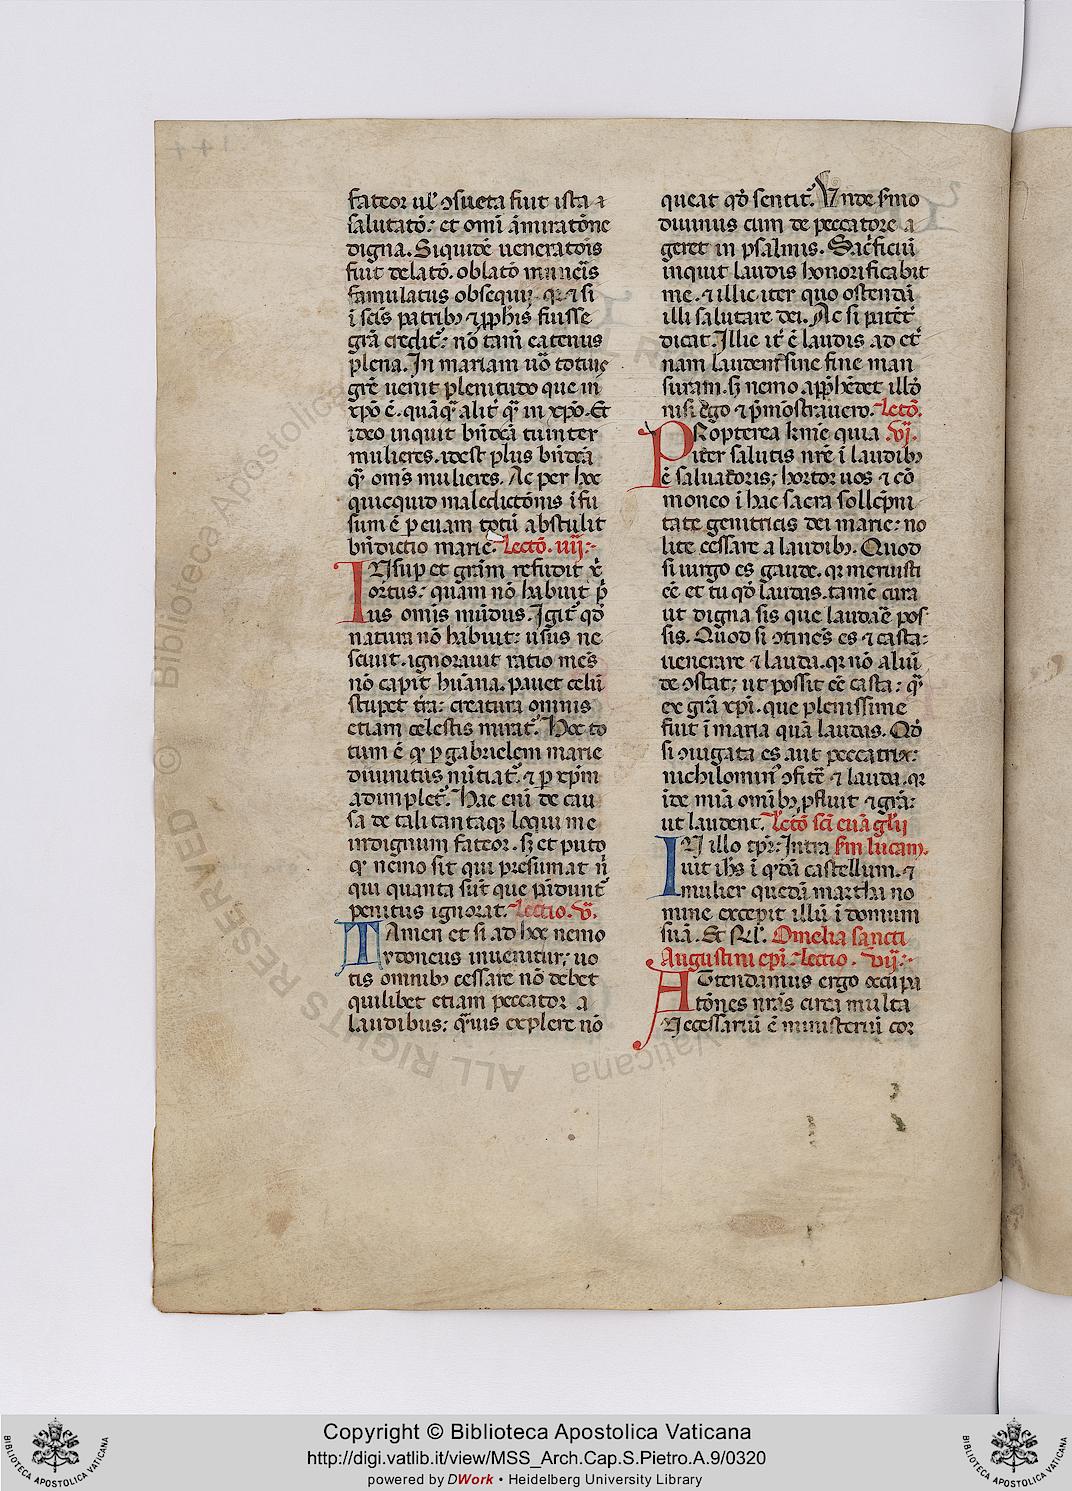 fateor ul' ɔsueta fuit ista ⁊
salutatō: et omī āmiratōne
digna. Siquidē ueneratōis
fuit delatō. oblatō munerīs
famulatus obsequii. qr ⁊ si
ī scīs patribꝫ ⁊ ꝓphīs fuisse
grā credit᷑: nō tam̄ eatenus
plena. In mariam uo̅ totius
grē uenit plenitudo que in
xpō ē. quāqͣ alit᷑ qͣ in xpō. Et
ideo inquit bn̄dcā tu inter
mulieres. idest plus bn̄dcā
qͣ om̄s mulieres. Ac per hoc
quicquid maledictōnis īfu
sum ē p euam totū abstulit
bn̄dictio marie. Lectō. iiij.
INsup et grām refudit x̄
ortus: quam nō habuit p̄
us om̄is mūdus. Igit᷑ qd̄
natura nō habuit: usus ne
sciuit. ignorauit ratio mēs
nō capit hūana. pauet celū
stupet tr̄a: creatura omnis
etiam celestis mirat᷑. Hoc to
tum ē qd p gabrielem marie
diuinitus nūtiat᷑. ⁊ p xpm̄
adimplet᷑. Hac eni de cau
sa de tali tantaqꝫ loqui me
indignum fateor. sꝫ et puto
qͦ nemo sit qui presumat n̄
qui quanta sūt que pn̄dunt᷑
penitus ignorat. Lectio. v.
TAmen et si ad hoc nemo
ydoneus inuenitur: uo
tis omnibꝫ cessare nō debet
quilibet etiam peccator a
laudibus: qͣuis explere nō
queat qd̄ sentit᷑. Unde sermo
diuinus cum de peccatore a
geret in psalmis. Sacrificiū
inquit laudis honorificabit
me. ⁊ illic iter quo ostendā
illi salutare dei. Ac si patēt᷑
dicat. Illic it᷑ ē laudis ad et᷑
nam laudem sine fine man
suram. sꝫ nemo apphēdet illō
nisi ego ⁊ p̄mōstrauero. Lectō.
PRopterea kmē quia vi.
iter salutis nrē ī laudibꝫ
ē saluatoris: hortor uos ⁊ cō
moneo ī hac sacra sollēpni
tate genitricis dei marie: no
lite cessare a laudibꝫ. Quod
si uirgo es gaude. qr meruisti
eē et tu qd̄ laudas. tamē cura
ut digna sis que laudare pos
sis. Quod si ɔtinēs es ⁊ casta:
uenerare ⁊ lauda. qr nō aliū
de ɔstat: ut possit eē casta: qͣ
ex grā xpi. que plenissime
fuit ī maria quā laudas. Qd̄
si ɔiugata es aut peccatrix:
nichilomin᷒ ɔfitē ⁊ lauda. qr
īde mīa omībꝫ ꝓfluit ⁊ grā:
ut laudent. Lectō scī euāglii
IN illo tp̄r: Intra sm̄ lucam.
uit ihs ī qdā castellum. ⁊
mulier quedā martha no
mine excepit illū ī domum
suā. Et Rl'. Omelia sancti
Augustini epī. Lectio. vij.
ATtendamus ergo occupa
tōnes nr̄as circa multa
Necessariū ē ministeriū cor
Copyright © Biblioteca Apostolica Vaticana
http://digi.vatlib.it/view/MSS_Arch.Cap.S.Pietro.A.9/0320
powered by DWork • Heidelberg University Library
BIBLIOTECA APOSTOLICA VATICANA
BIBLIOTECA APOSTOLICA VATICANA